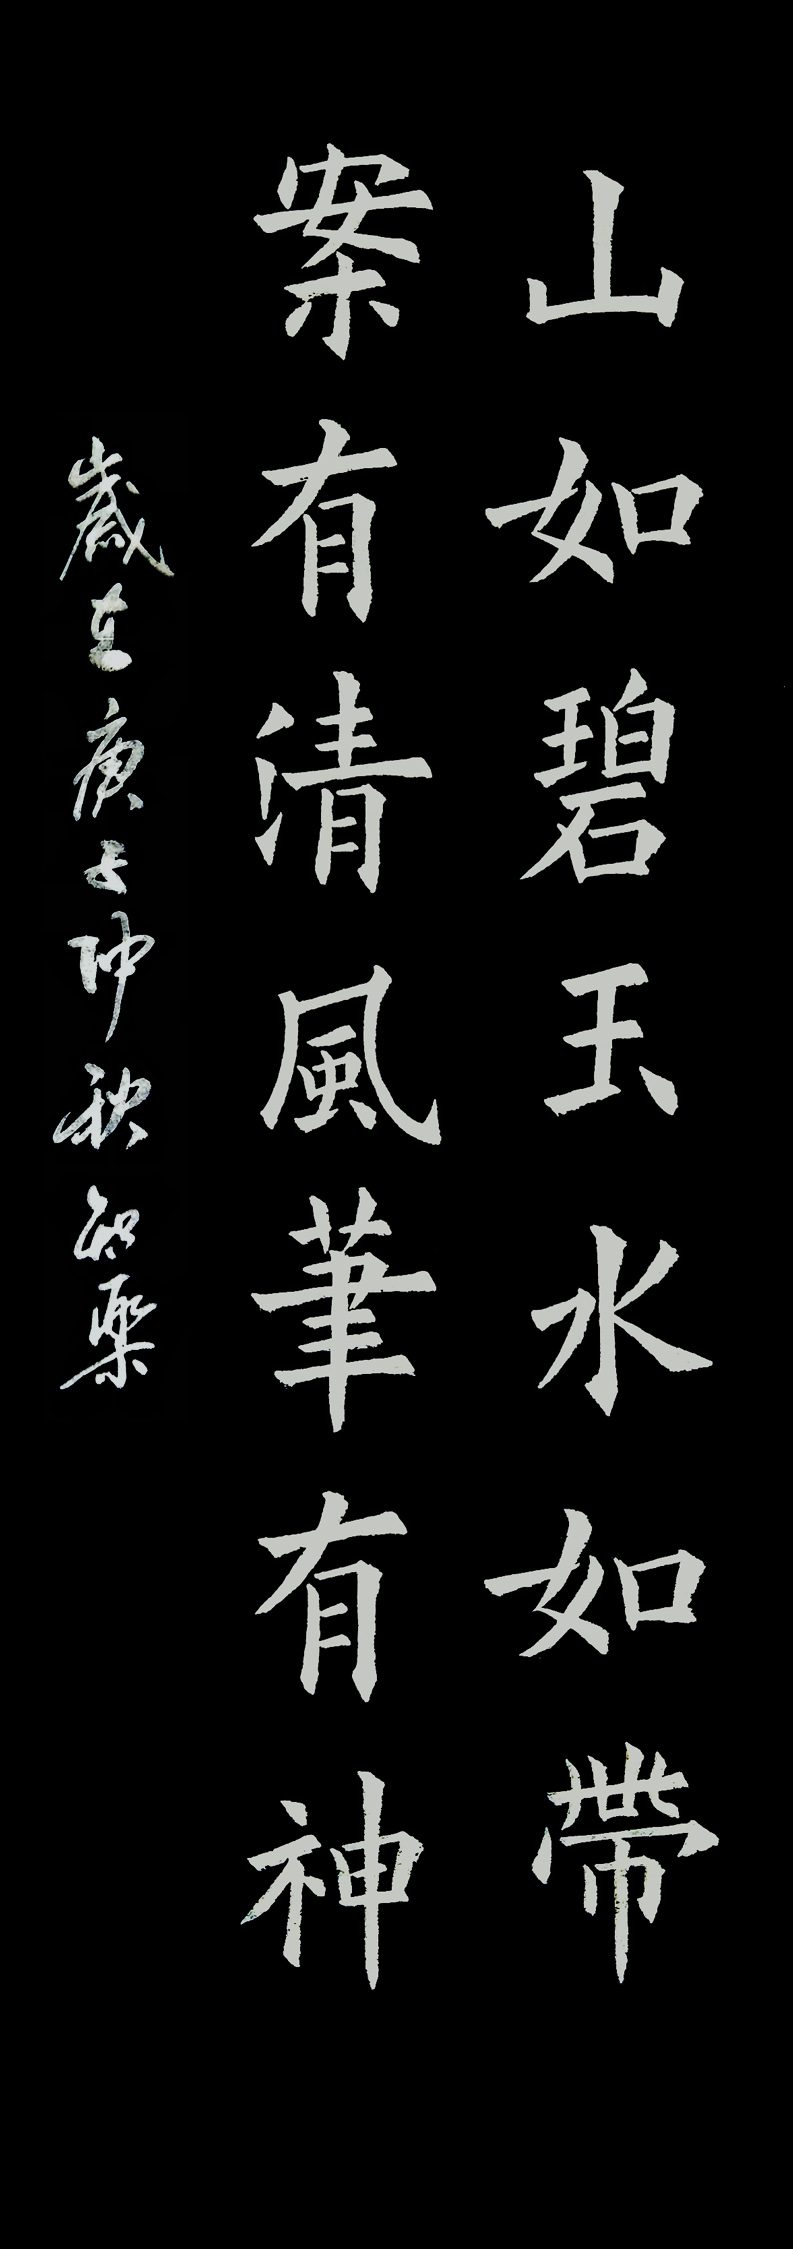 山如碧玉水如帶
案有清風筆有神
歲在庚子仲秋智樂